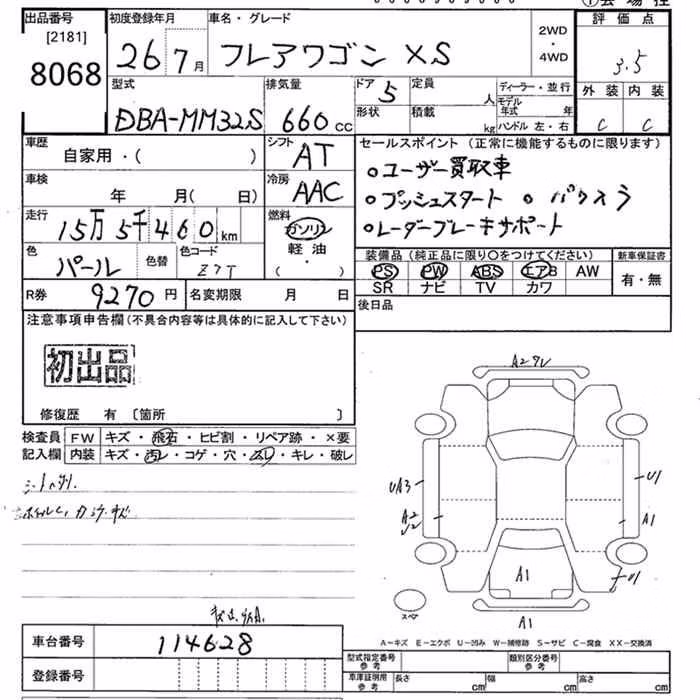 出品番号
[2181]
8068
初度登録年月
26 7月
車名・グレード
フレアワゴン XS
2WD
・
4WD
評価点
3.5
外装 内装
C C
型式
DBA-MM32S
排気量
660 cc
ドア 5
定員 人
形状
積載 kg
ディーラー・並行
モデル年式 年
ハンドル 左・右
車歴
自家用・( )
シフト
AT
セールスポイント (正常に機能するものに限ります)
○ユーザー買取車
○プッシュスタート ○
○レーダーブレーキサポート
車検
年 月(日)
冷房
AAC
走行
15万5千460km
燃料
ガソリン
軽油
( )
色
パール
色替
色コード
Z7T
装備品 (純正品に限り○をつけてください)
PS PW ABS エアB AW
SR ナビ TV カワ
新車保証書
有・無
R券
9270円
名変期限 月 日
後日品
注意事項申告欄(不具合内容等は具体的に記入して下さい)
初出品
修復歴 有 〔箇所 〕
検査員
記入欄
FW キズ・飛石・ヒビ割・リペア跡・×要
内装 キズ・汚レ・コゲ・穴・スレ・キレ・破レ
A2
UA3
U1
A2
U2
A1
A1
U1
スペア
A1
A-キズ E-エクボ U-凹み W-補修跡 S-サビ C-腐食 XX-交換済
車台番号
114628
登録番号
型式指定番号
参考
類別区分番号
参考
車庫証明用
参考
長さ cm 幅 cm 高さ cm